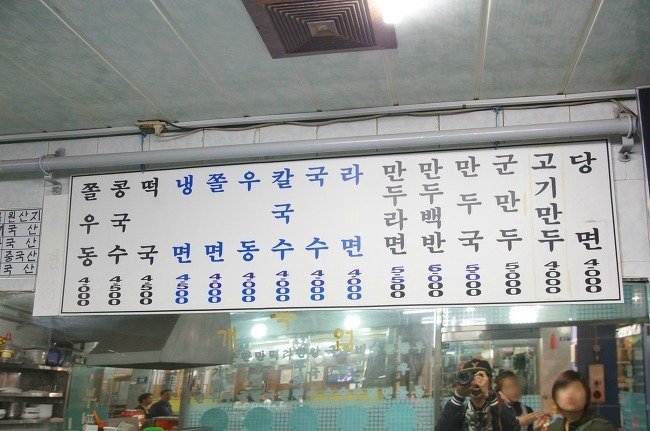 쫄우동 4000
콩국수 4500
떡국 4500
냉면 4500
쫄면 4000
우동 4000
칼국수 4000
국수 4000
라면 4000
만두라면 5500
만두백반 6000
만두국 5000
군만두 5000
고기만두 4000
당면 4000
원산지
국산
중국산
국산